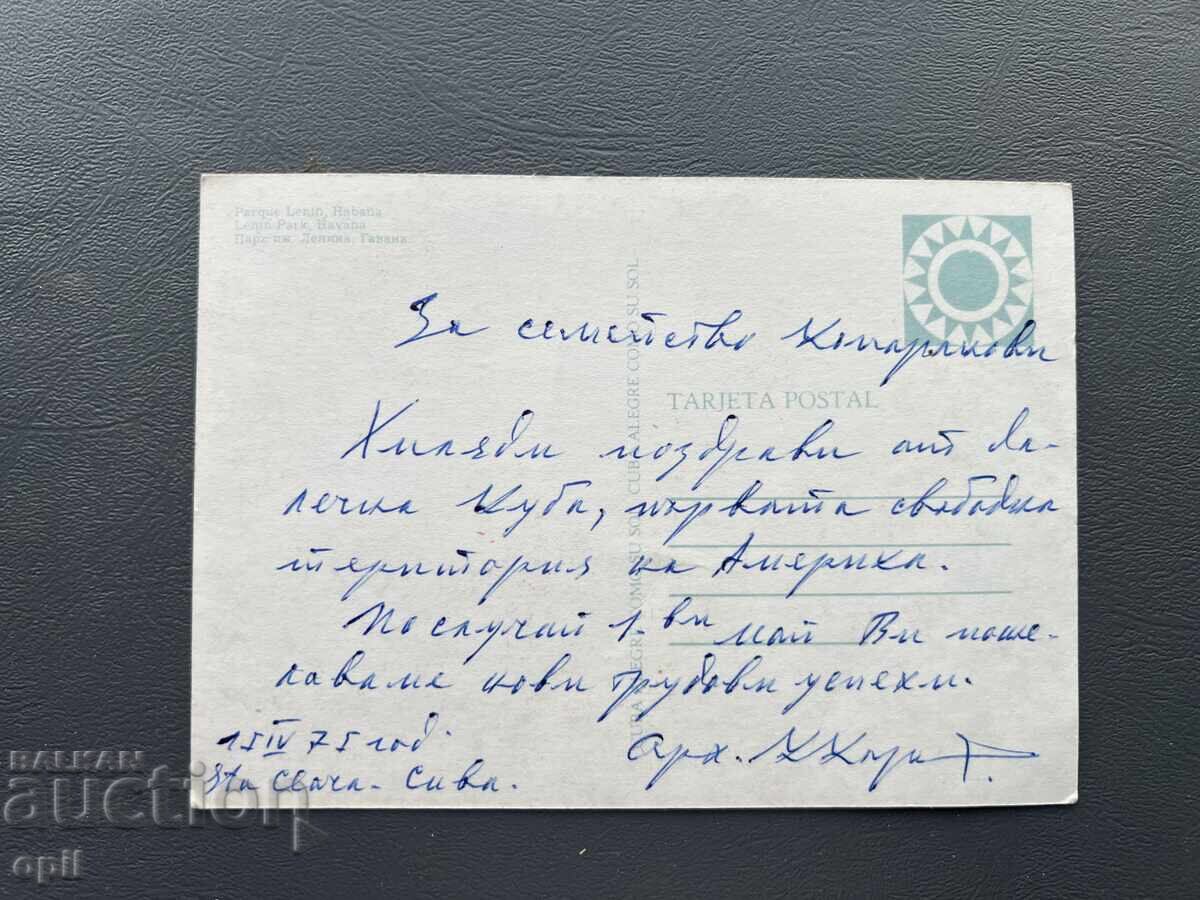 Parque Lenin, Habana
Lenin Park, Havana
Парк им. Ленина, Гавана
CUBA ALEGRE COMO SU SOL
CUBA ALEGRE COMO SU SOL
TARJETA POSTAL
За семейство
Хиляди поздрави от да-
лечна Куба, първата свободна
територия на Америка.
По случай 1.ви май Ви поже-
лаваме нови трудови успехи.
15 IV 75 год.
Арх.
Sta Clara - Cuba.
BALKAN
auction
opll